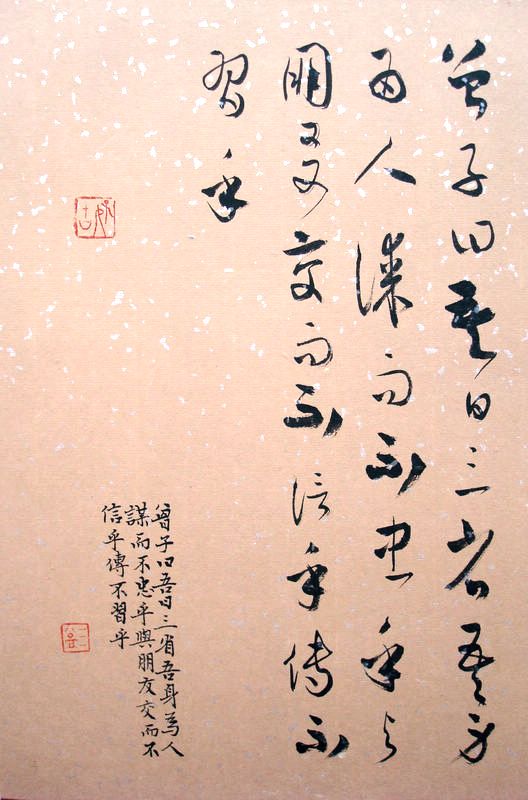 曾子曰吾日三省吾身
為人謀而不忠乎與
朋友交而不信乎傳不
習乎
曾子曰吾日三省吾身為人
謀而不忠乎與朋友交而不
信乎傳不習乎